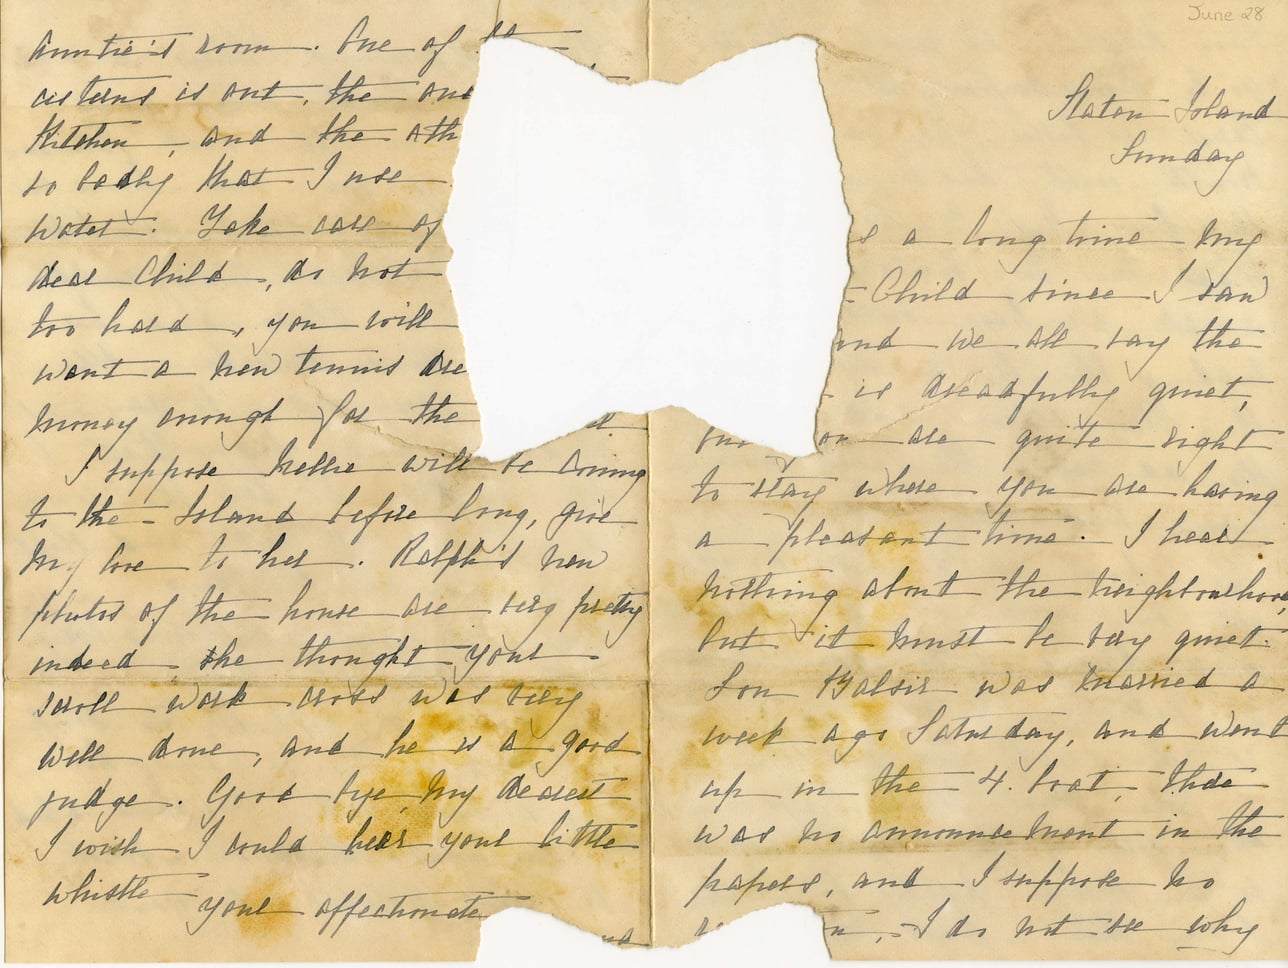 June 28
Staten Island
Sunday
s a long time my
Child since I saw
and we all say the
is dreadfully quiet,
but you are quite right
to stay where you are having
a pleasant time. I hear
nothing about the neighbourhood,
but it must be very quiet.
Lou was married a
week ago Saturday, and went
up in the 4. boat, there
was no announcement in the
papers, and I suppose no
n, I do not see why
Auntie's room. One of the
cisterns is out, the one
Kitchen, and the oth
so badly that I use
water. Take care of
dear Child, do not
too hard, you will
want a new tennis dre
money enough for the
I suppose Nellie will be coming
to the Island before long, give
my love to her. Ralph's new
photos of the house are very pretty
indeed, she thought your
scroll work cross was very
well done, and he is a good
judge. Good bye, my dearest
I wish I could hear your little
whistle
your affectionate